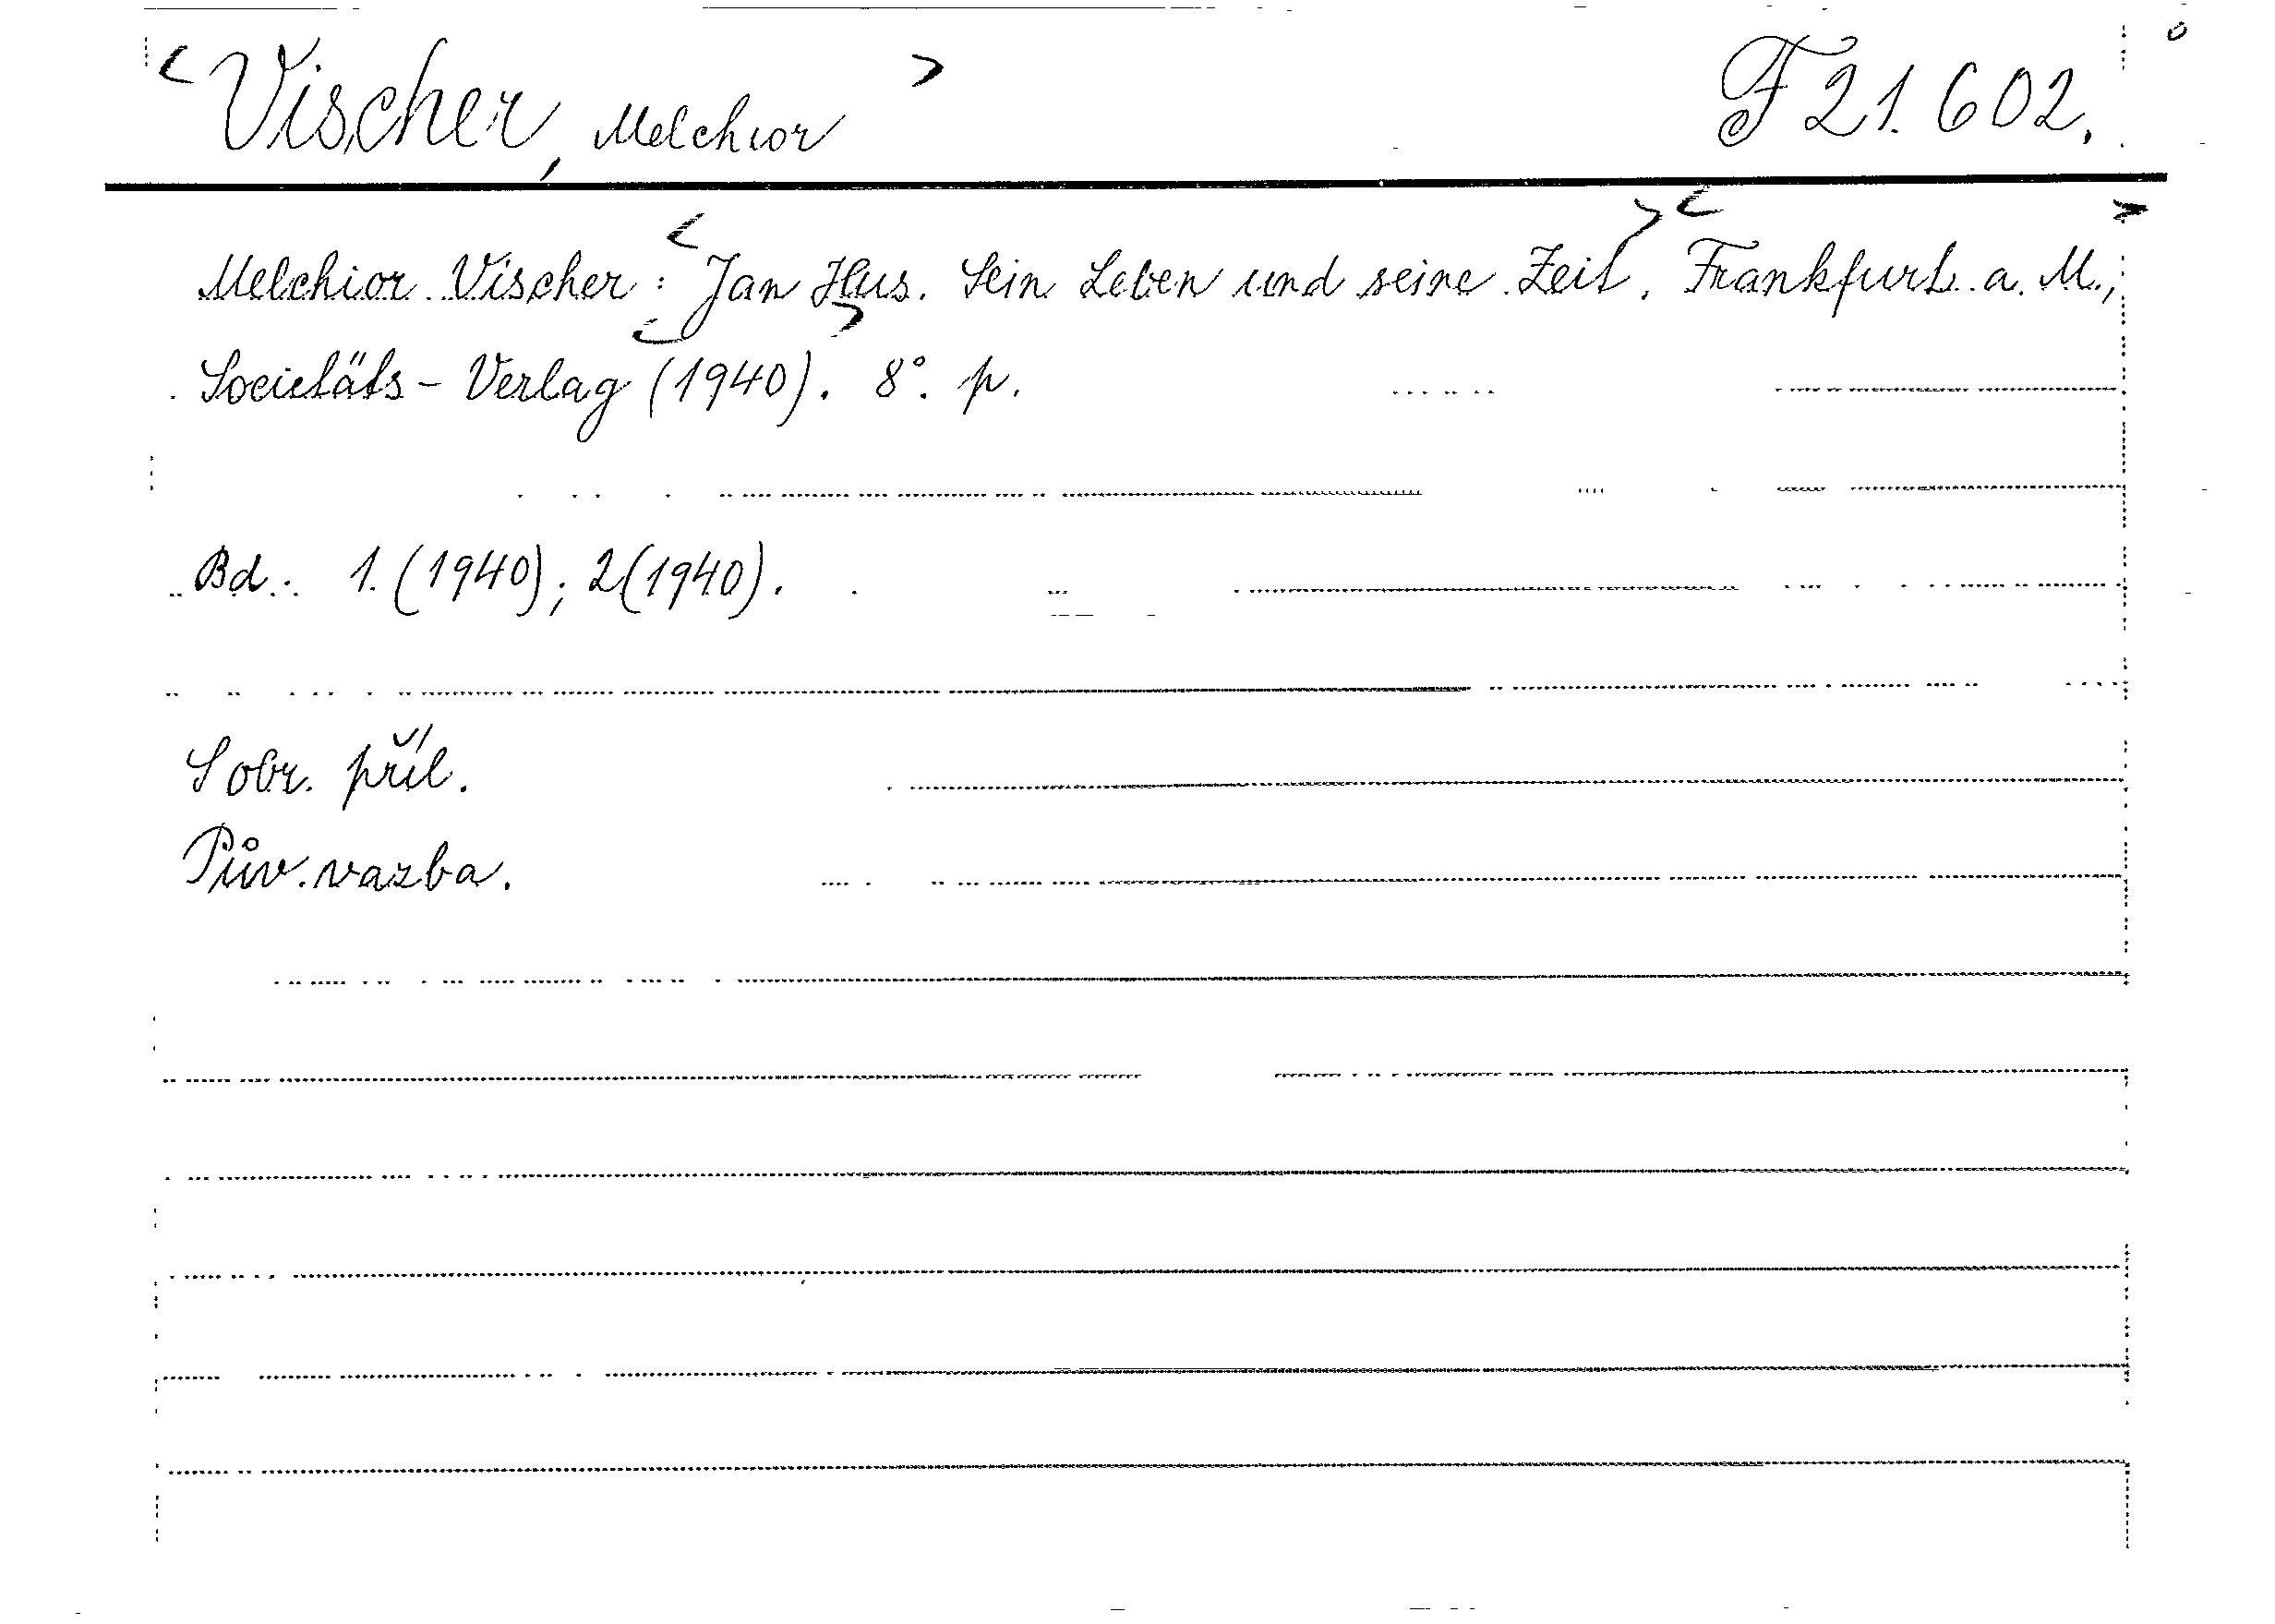 <Vischer, Melchior> F 21.602.
Melchior Vischer: <Jan Hus. Sein Leben und seine Zeit.> <Frankfurt a. M.,>
Societäts-Verlag <(1940)>. 8°. p.
Bd.: 1.(1940); 2(1940).
S obr. příl.
Pův. vazba.